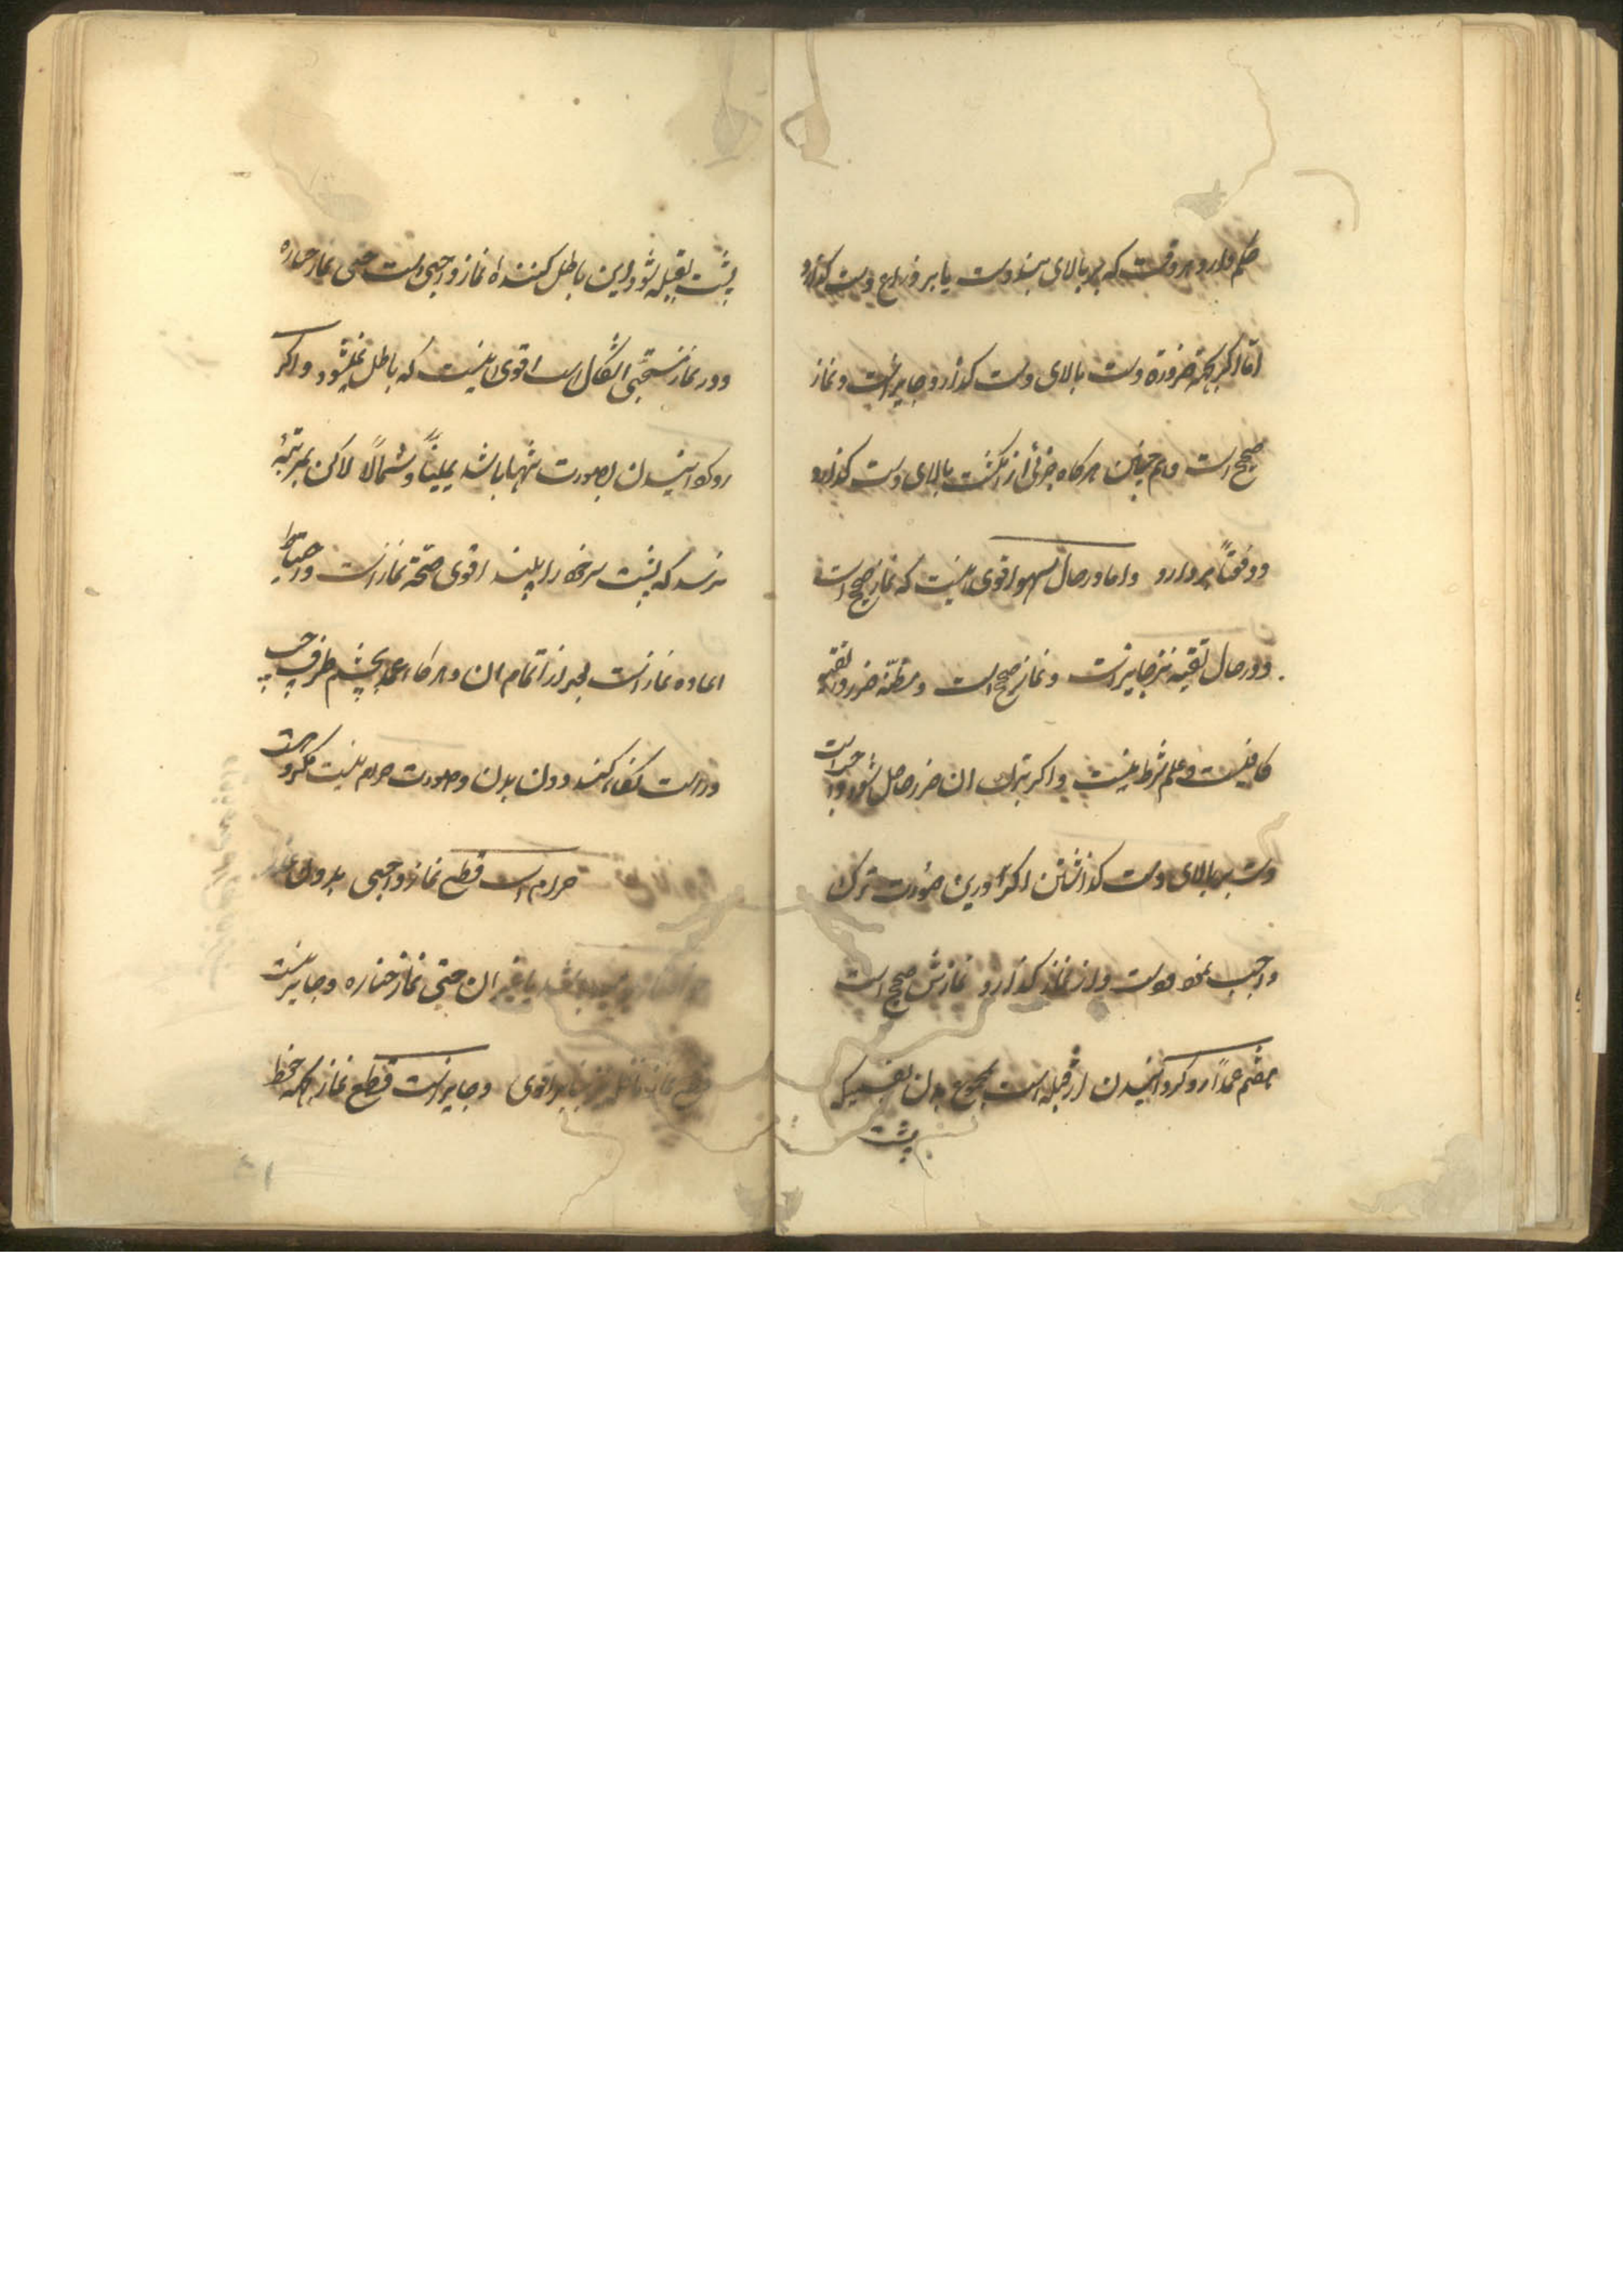 حکم دارد هر وقت که بر بالای بند دست یا بر ذراع دست کذارد
امّا اکر بجهة ضرورة دست بالای دست کذارد جایز است و نماز
صحیح است و هم چنین هر کاه جزئی از انکشت بالای دست کذارد
و وفقاً بر دارد و اما در حال سهو اقوی اینست که نماز صحیح است
و در حال تقیه نیز جایز است و نماز صحیح است و مظنّه ضرر در تقیه
کافیست و علم شرط نیست و اکر بترک ان ضرر حاصل شود حرام است
دست بر بالای دست کذاشتن اکر در این صورت ترک
واجب نموده است و از نماز کذارد نمازش صحیح است
هشتم عمداً رو کردانیدن از قبله است بجمیع بدن بقسمیکه
پشت
پشت بقبله شود و این باطل کننده نماز واجبی است حتی نماز جنازه
و در نماز مستحبّی اشکال است اقوی اینست که باطل نمیشود و اکر
رو کردانیدن بصورت تنها باشد یمیناً و شمالاً لاکن بمرتبهٔ
نرسد که پشت سر خود را به بیند اقوی صحّة نماز است و احتیاط
اعاده نماز است بعد از اتمام ان و هر کاه عمداً بچشم طرف چپ
و راست نکاه کند دون بدن و صورت حرام نیست مکروه است
حرام است قطع نماز واجبی بدون عذر
باشد یا غیر ان حتی نماز جنازه و جایز نیست
قطع نماز نافله نیز بنا بر اقوی و جایز است قطع نماز بجهة حفظ